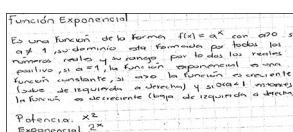 Función Exponencial
Es una función de la forma f(x) = a^x con a>0
a ≠ 1, su dominio esta formado por todos los
números reales y su rango por todos los reales
positivo, si a = 1, la función exponencial es una
función constante, si a>0 la función es creciente
(sube de izquierda a derecha) y si 0<a<1 entonces
la función es decreciente (baja de izquierda a derecha
Potencia: x²
Exponencial 2^x